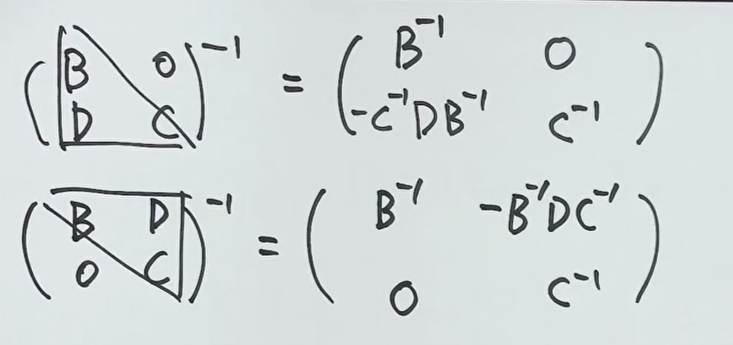 (B O
D C)⁻¹ = (B⁻¹ O
-C⁻¹DB⁻¹ C⁻¹)
(B D
O C)⁻¹ = (B⁻¹ -B⁻¹DC⁻¹
O C⁻¹)